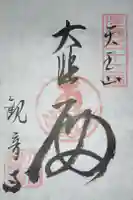 天王山
大悲殿
観音寺